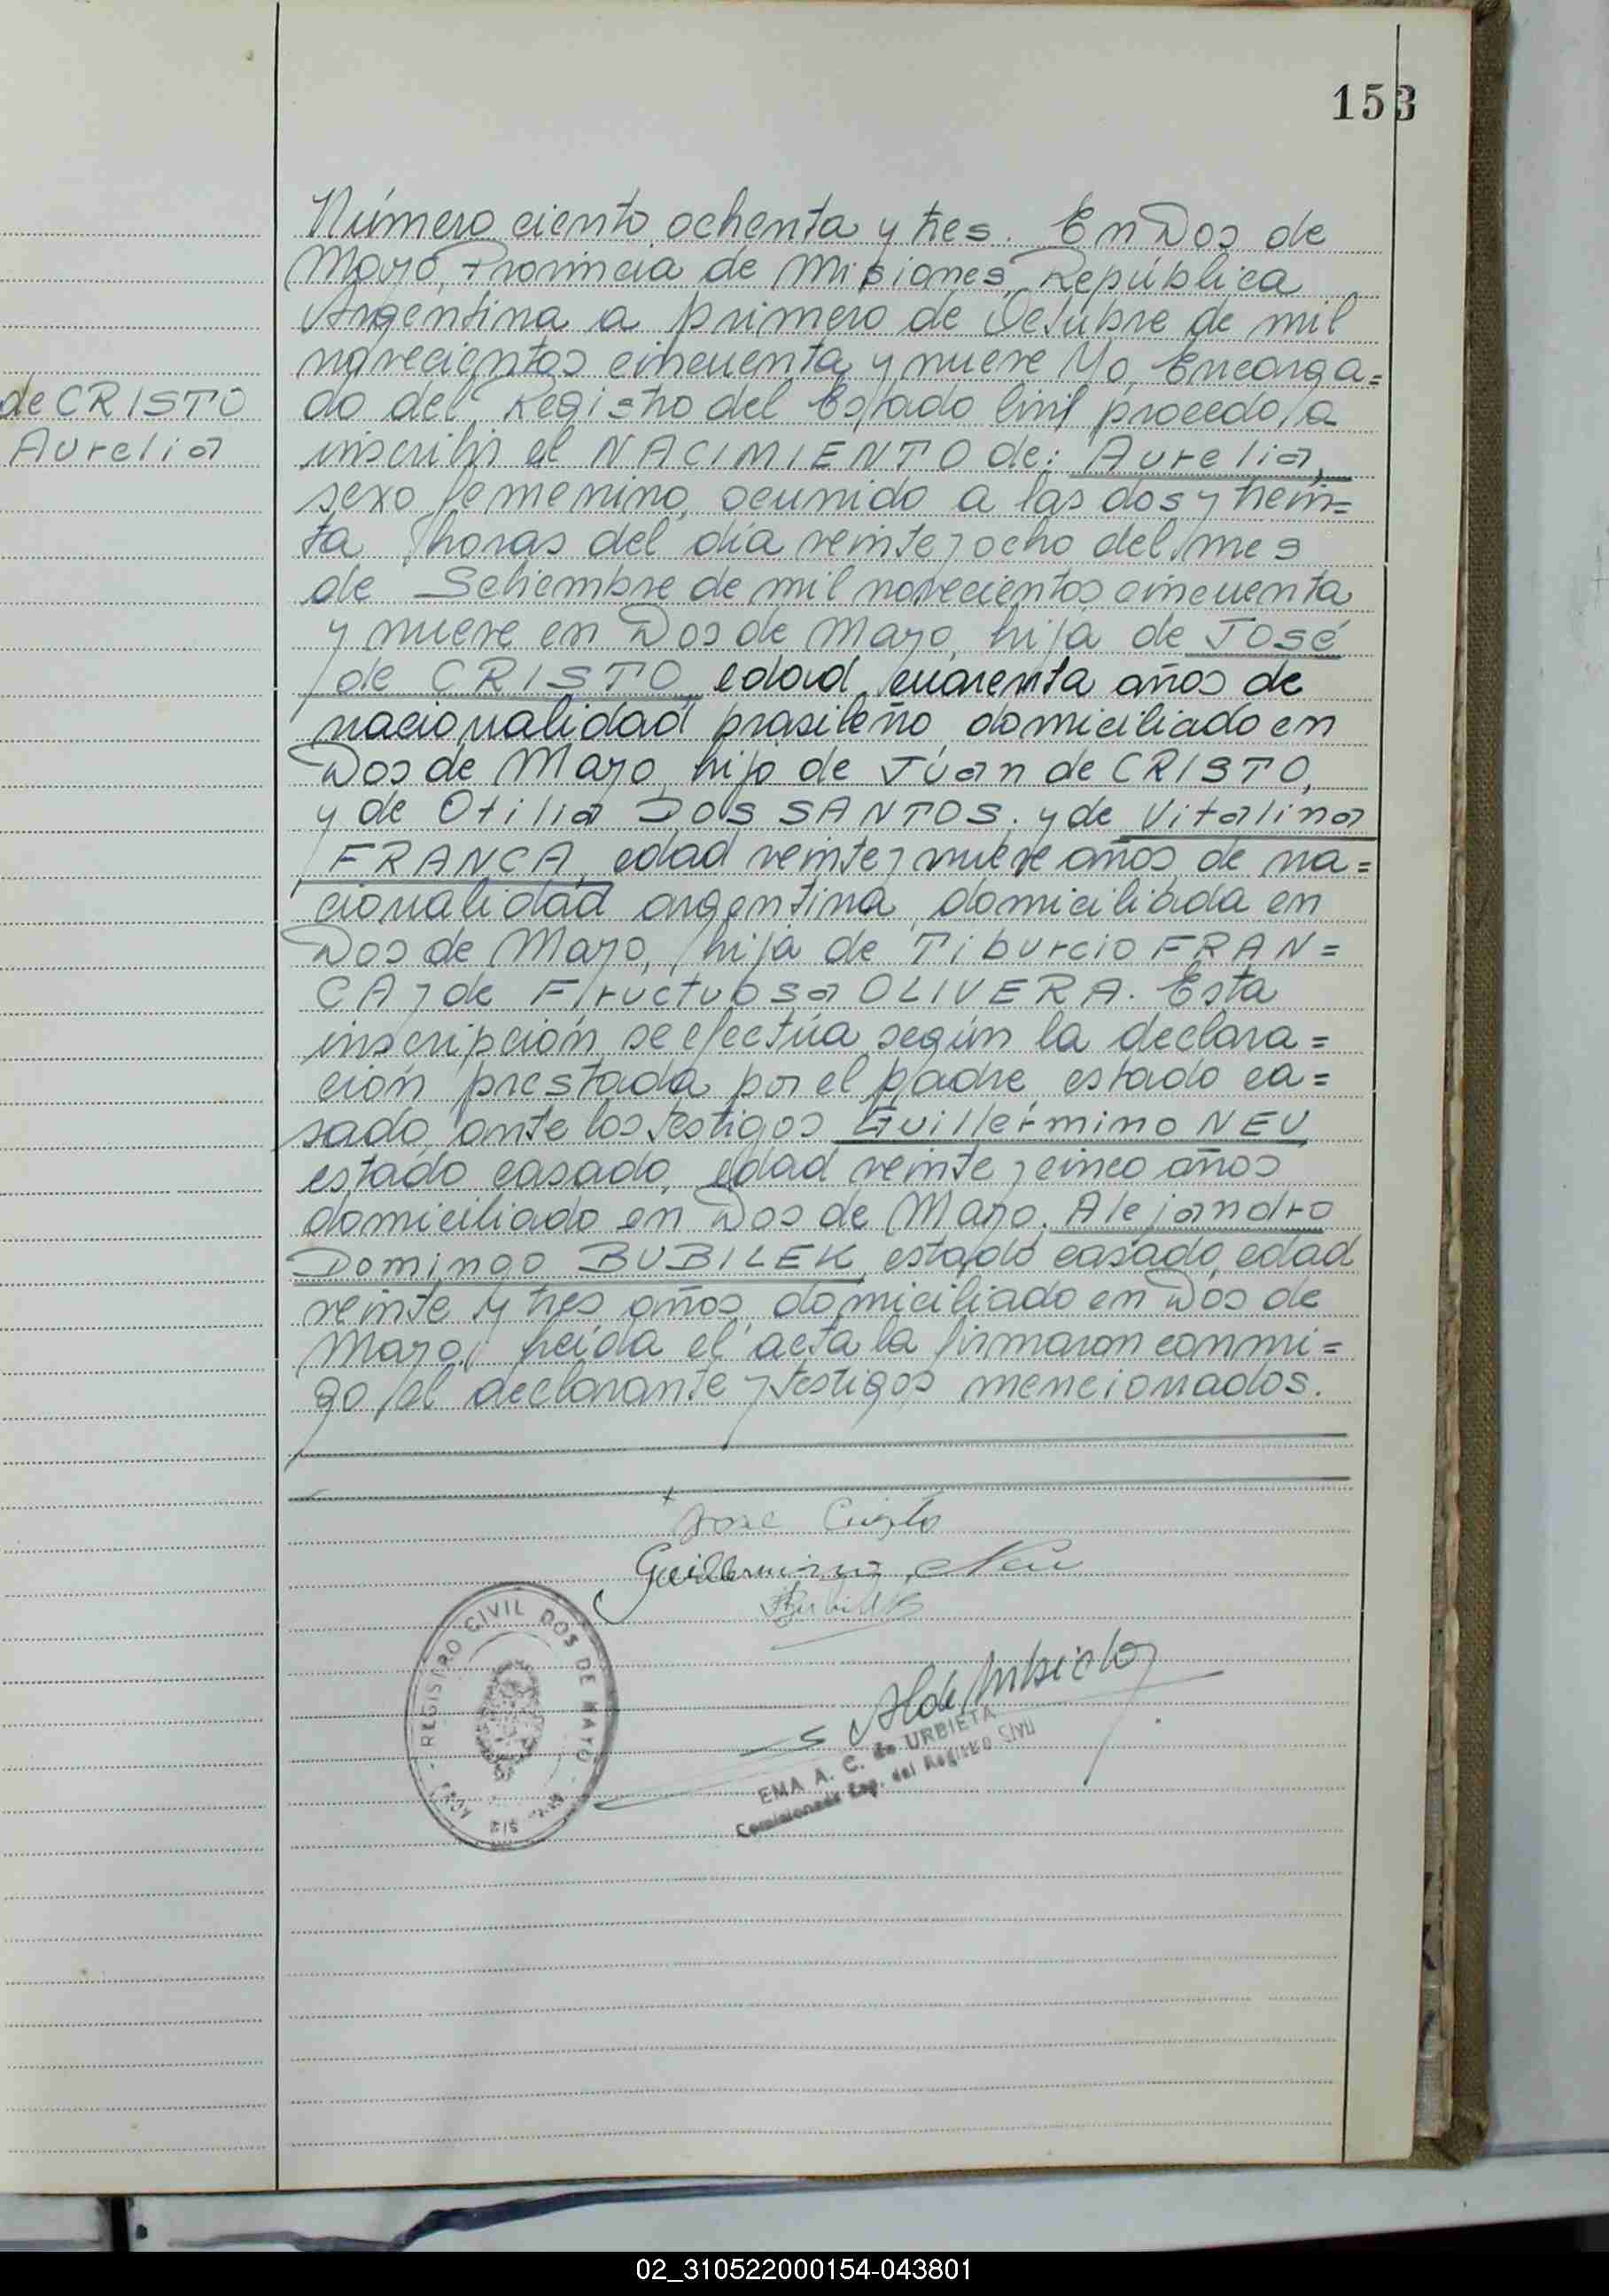 153
Número ciento ochenta y tres. En Dos de
Mayo, Provincia de Misiones, República
Argentina a primero de Octubre de mil
novecientos cincuenta y nueve Yo, Encarga=
de CRISTO
Aurelia
do del Registro del Estado Civil procedo, a
inscribir el NACIMIENTO de: Aurelia,
sexo femenino, ocurrido a las dos y trein=
ta horas del día veinte y ocho del mes
de Setiembre de mil novecientos cincuenta
y nueve en Dos de Mayo, hija de José
de CRISTO, edad cuarenta años de
nacionalidad brasileño, domiciliado en
Dos de Mayo, hijo de Juan de CRISTO,
y de Otilia DOS SANTOS. y de Vitalina
FRANCA, edad veinte y nueve años, de na=
cionalidad argentina, domiciliada en
Dos de Mayo, hija de Tiburcio FRAN=
CA y de Fructuosa OLIVERA. Esta
inscripción se efectúa según la declara=
ción prestada por el padre estado ca=
sado, ante los testigos Guillermino NEU,
estado casado, edad veinte y cinco años
domiciliado en Dos de Mayo. Alejandro
Domingo BUBILEK, estado casado, edad
veinte y tres años, domiciliado en Dos de
Mayo, leída el acta la firmaron conmi=
go, el declarante y testigos mencionados.
Jose Cristo
Guillermino Neu
REGISTRO CIVIL DOS DE MAYO
EMA A. C. de URBIETA
Comisionada Esp. del Registro Civil
02_310522000154-043801